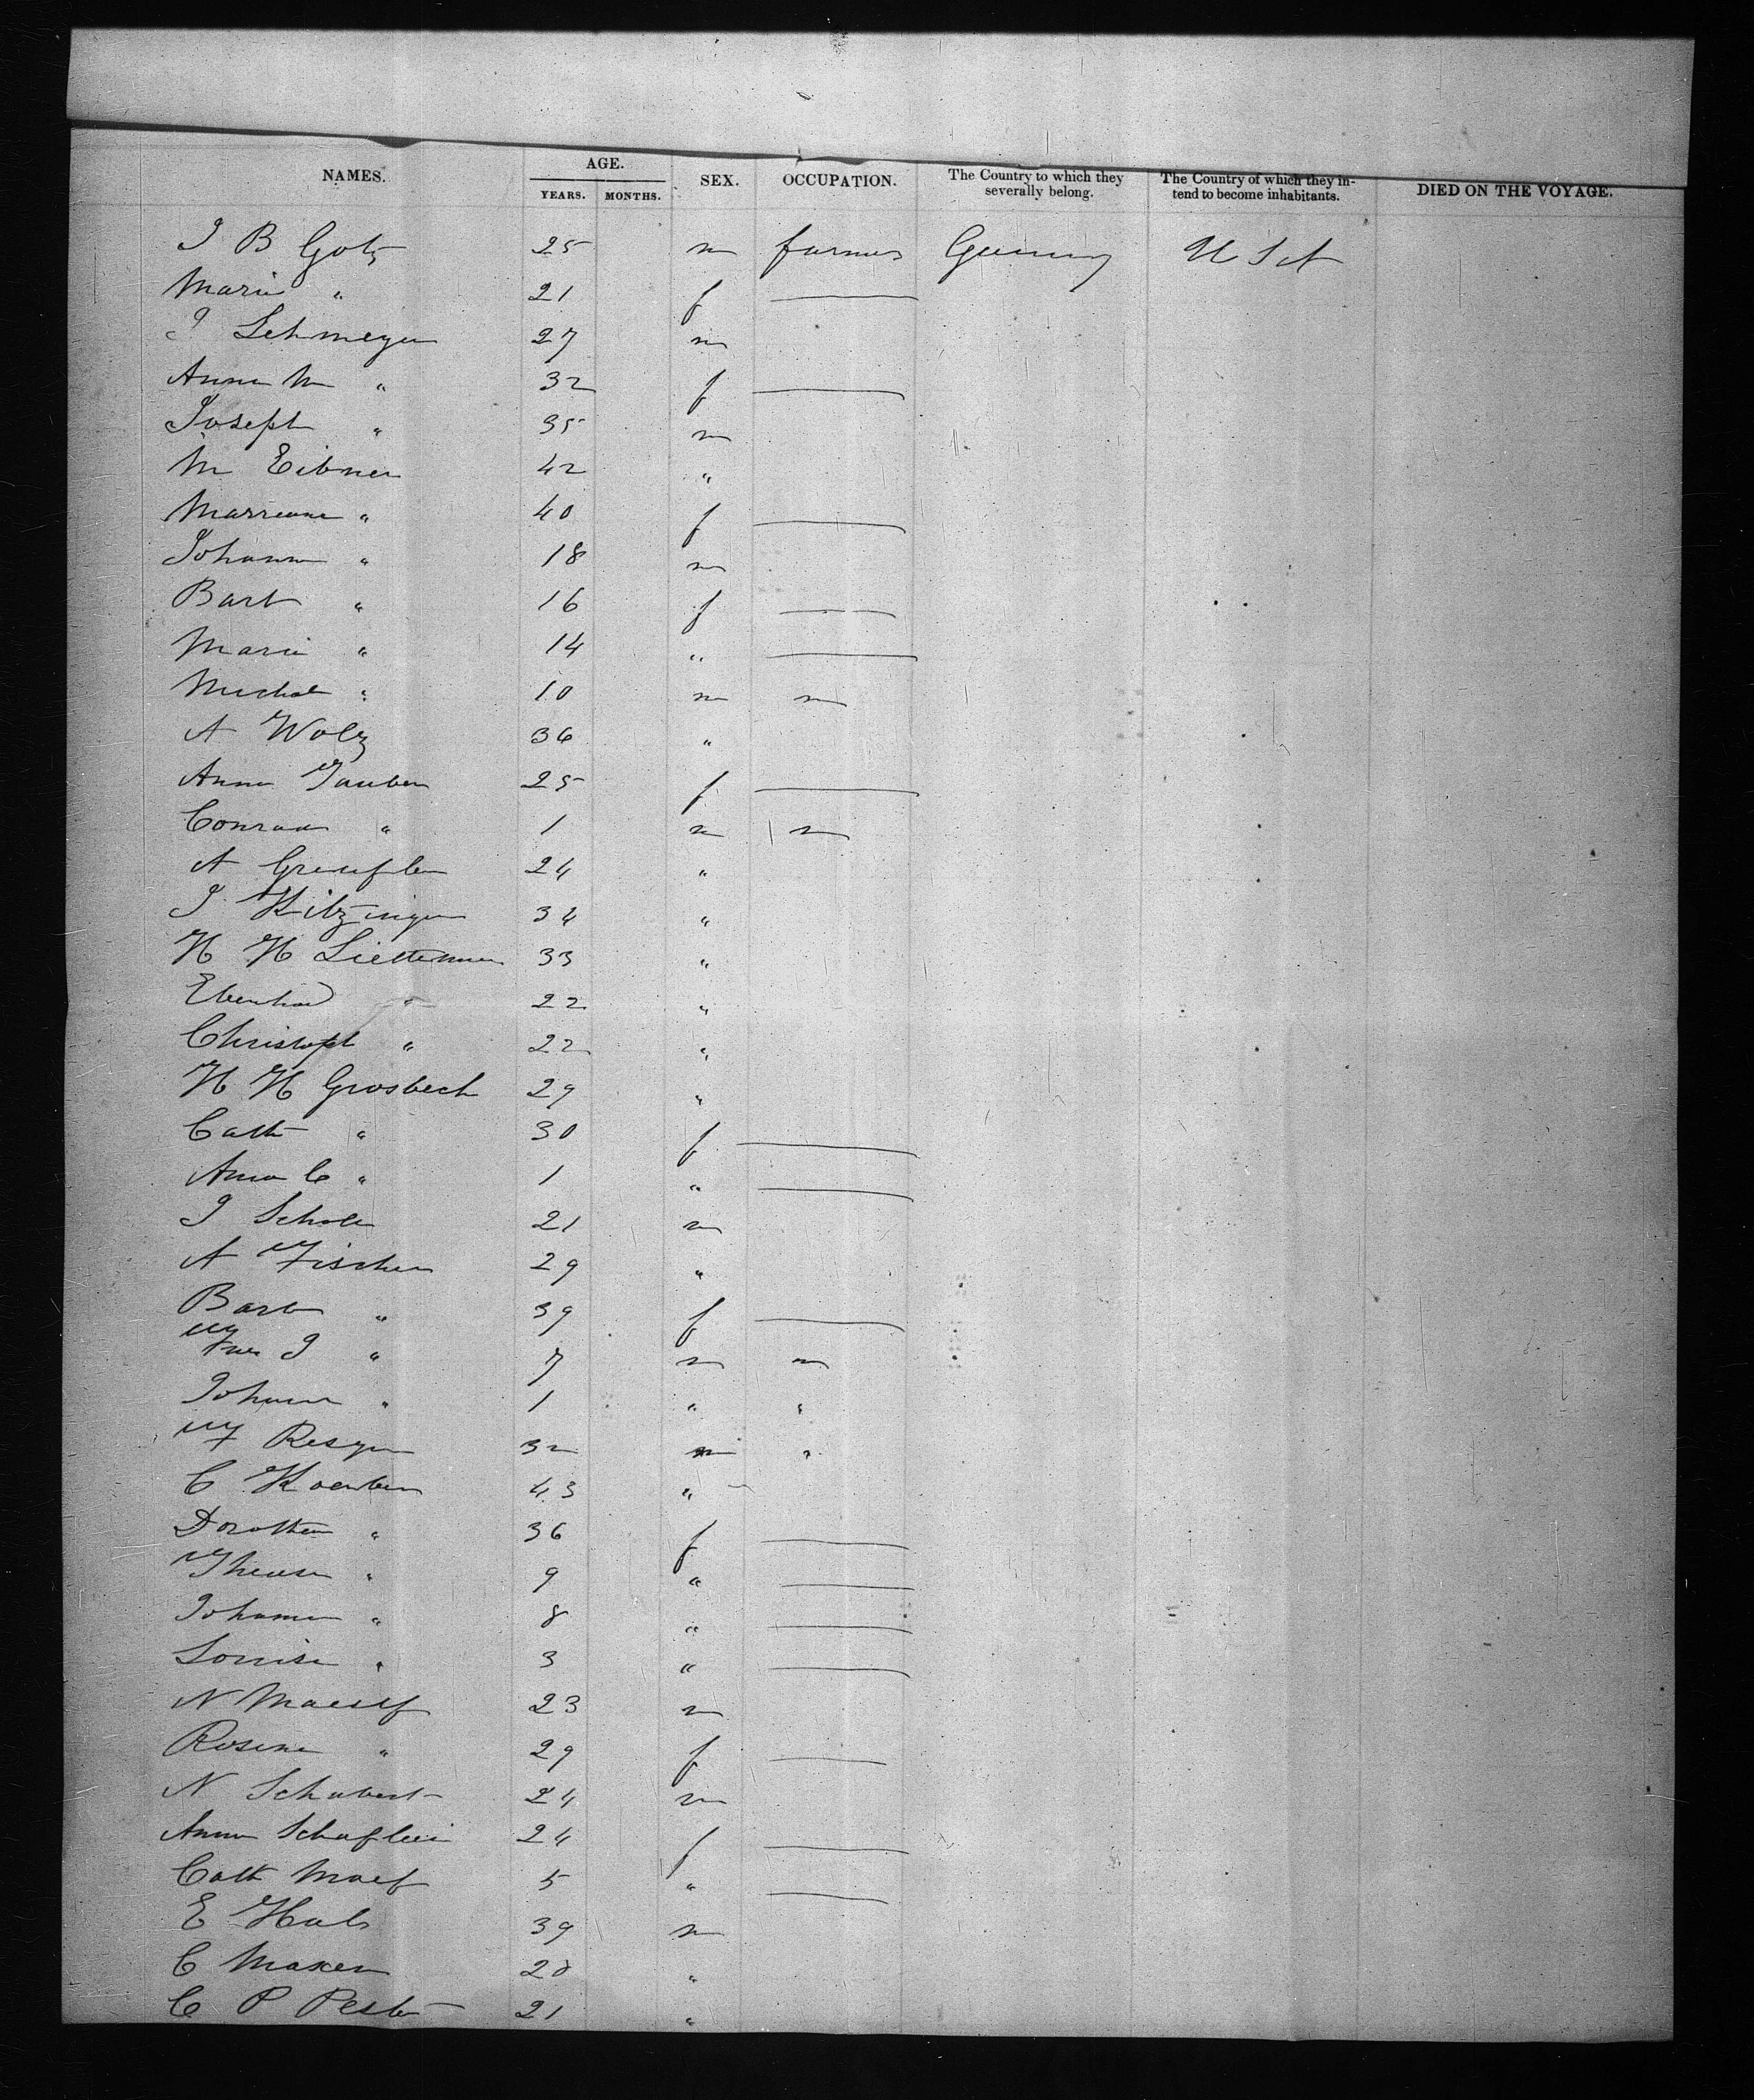 NAMES. AGE. YEARS. MONTHS. SEX. OCCUPATION. The Country to which they severally belong. The Country of which they intend to become inhabitants. DIED ON THE VOYAGE.
J B Gotz 25 m farmer Germany U S A
Marie " 21 f
J Lehmeyer 27 m
Anna M " 32 f
Joseph " 35 m
M Eibner 42 "
Marreane " 40 f
Johann " 18 m
Barb " 16 f
Marie " 14 "
Michal " 10 m
A Wolz 36 "
Anna Tauber 25 f
Conrad " 1 m
A 24 "
J Kitzinger 34 "
H H 33 "
Eberhard " 22 "
Christoph " 22 "
H H Grosbech 29 "
Cath " 30 f
Anna C " 1 "
J 21 m
A Fischer 29 "
Barb " 39 f
J " 7 m
Johann " 1 " "
F 32 m "
C 43 "
Dorothea " 36 f
" 9 "
Johanna " 8 "
Louise " 3 "
N 23 m
Rosine " 29 f
N Schubert 24 m
Anna 24 f
Cath 5 "
E 39 m
C Maxen 20 "
C P 21 "